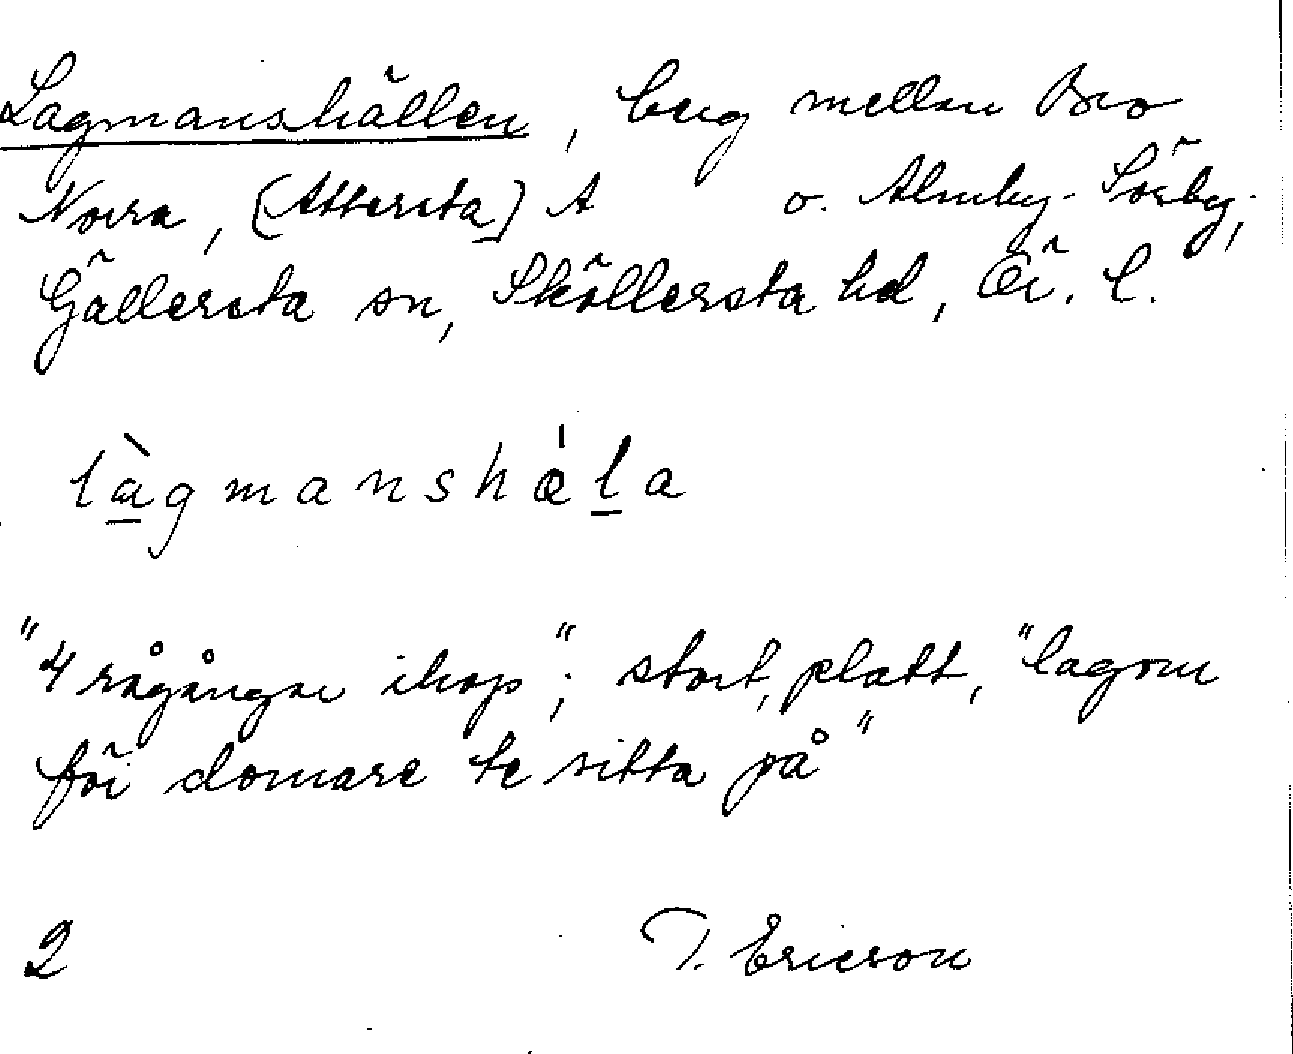 Lagmanshällen, berg mellan Bro
Norra, (Attersta) A o. Almby-Sörby,
Gällersta sn, Sköllersta hd, Ör. l.
làgmanshæ̍la
"4 rågångar ihop"; stort, platt, "lagom
för domare te sitta på"
2 T. Ericson